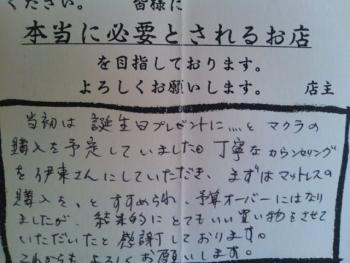 ください。 皆様に
本当に必要とされるお店
を目指しております。
よろしくお願いします。 店主
当初は誕生日プレゼントに…とマクラの
購入を予定していました。丁寧なカウンセリング
を伊東さんにしていただき、まずはマットレスの
購入を、とすすめられ、予算オーバーにはなり
ましたが、結果的にとてもいい買い物をさせて
いただいたと感謝しております。
これからもよろしくお願いします。